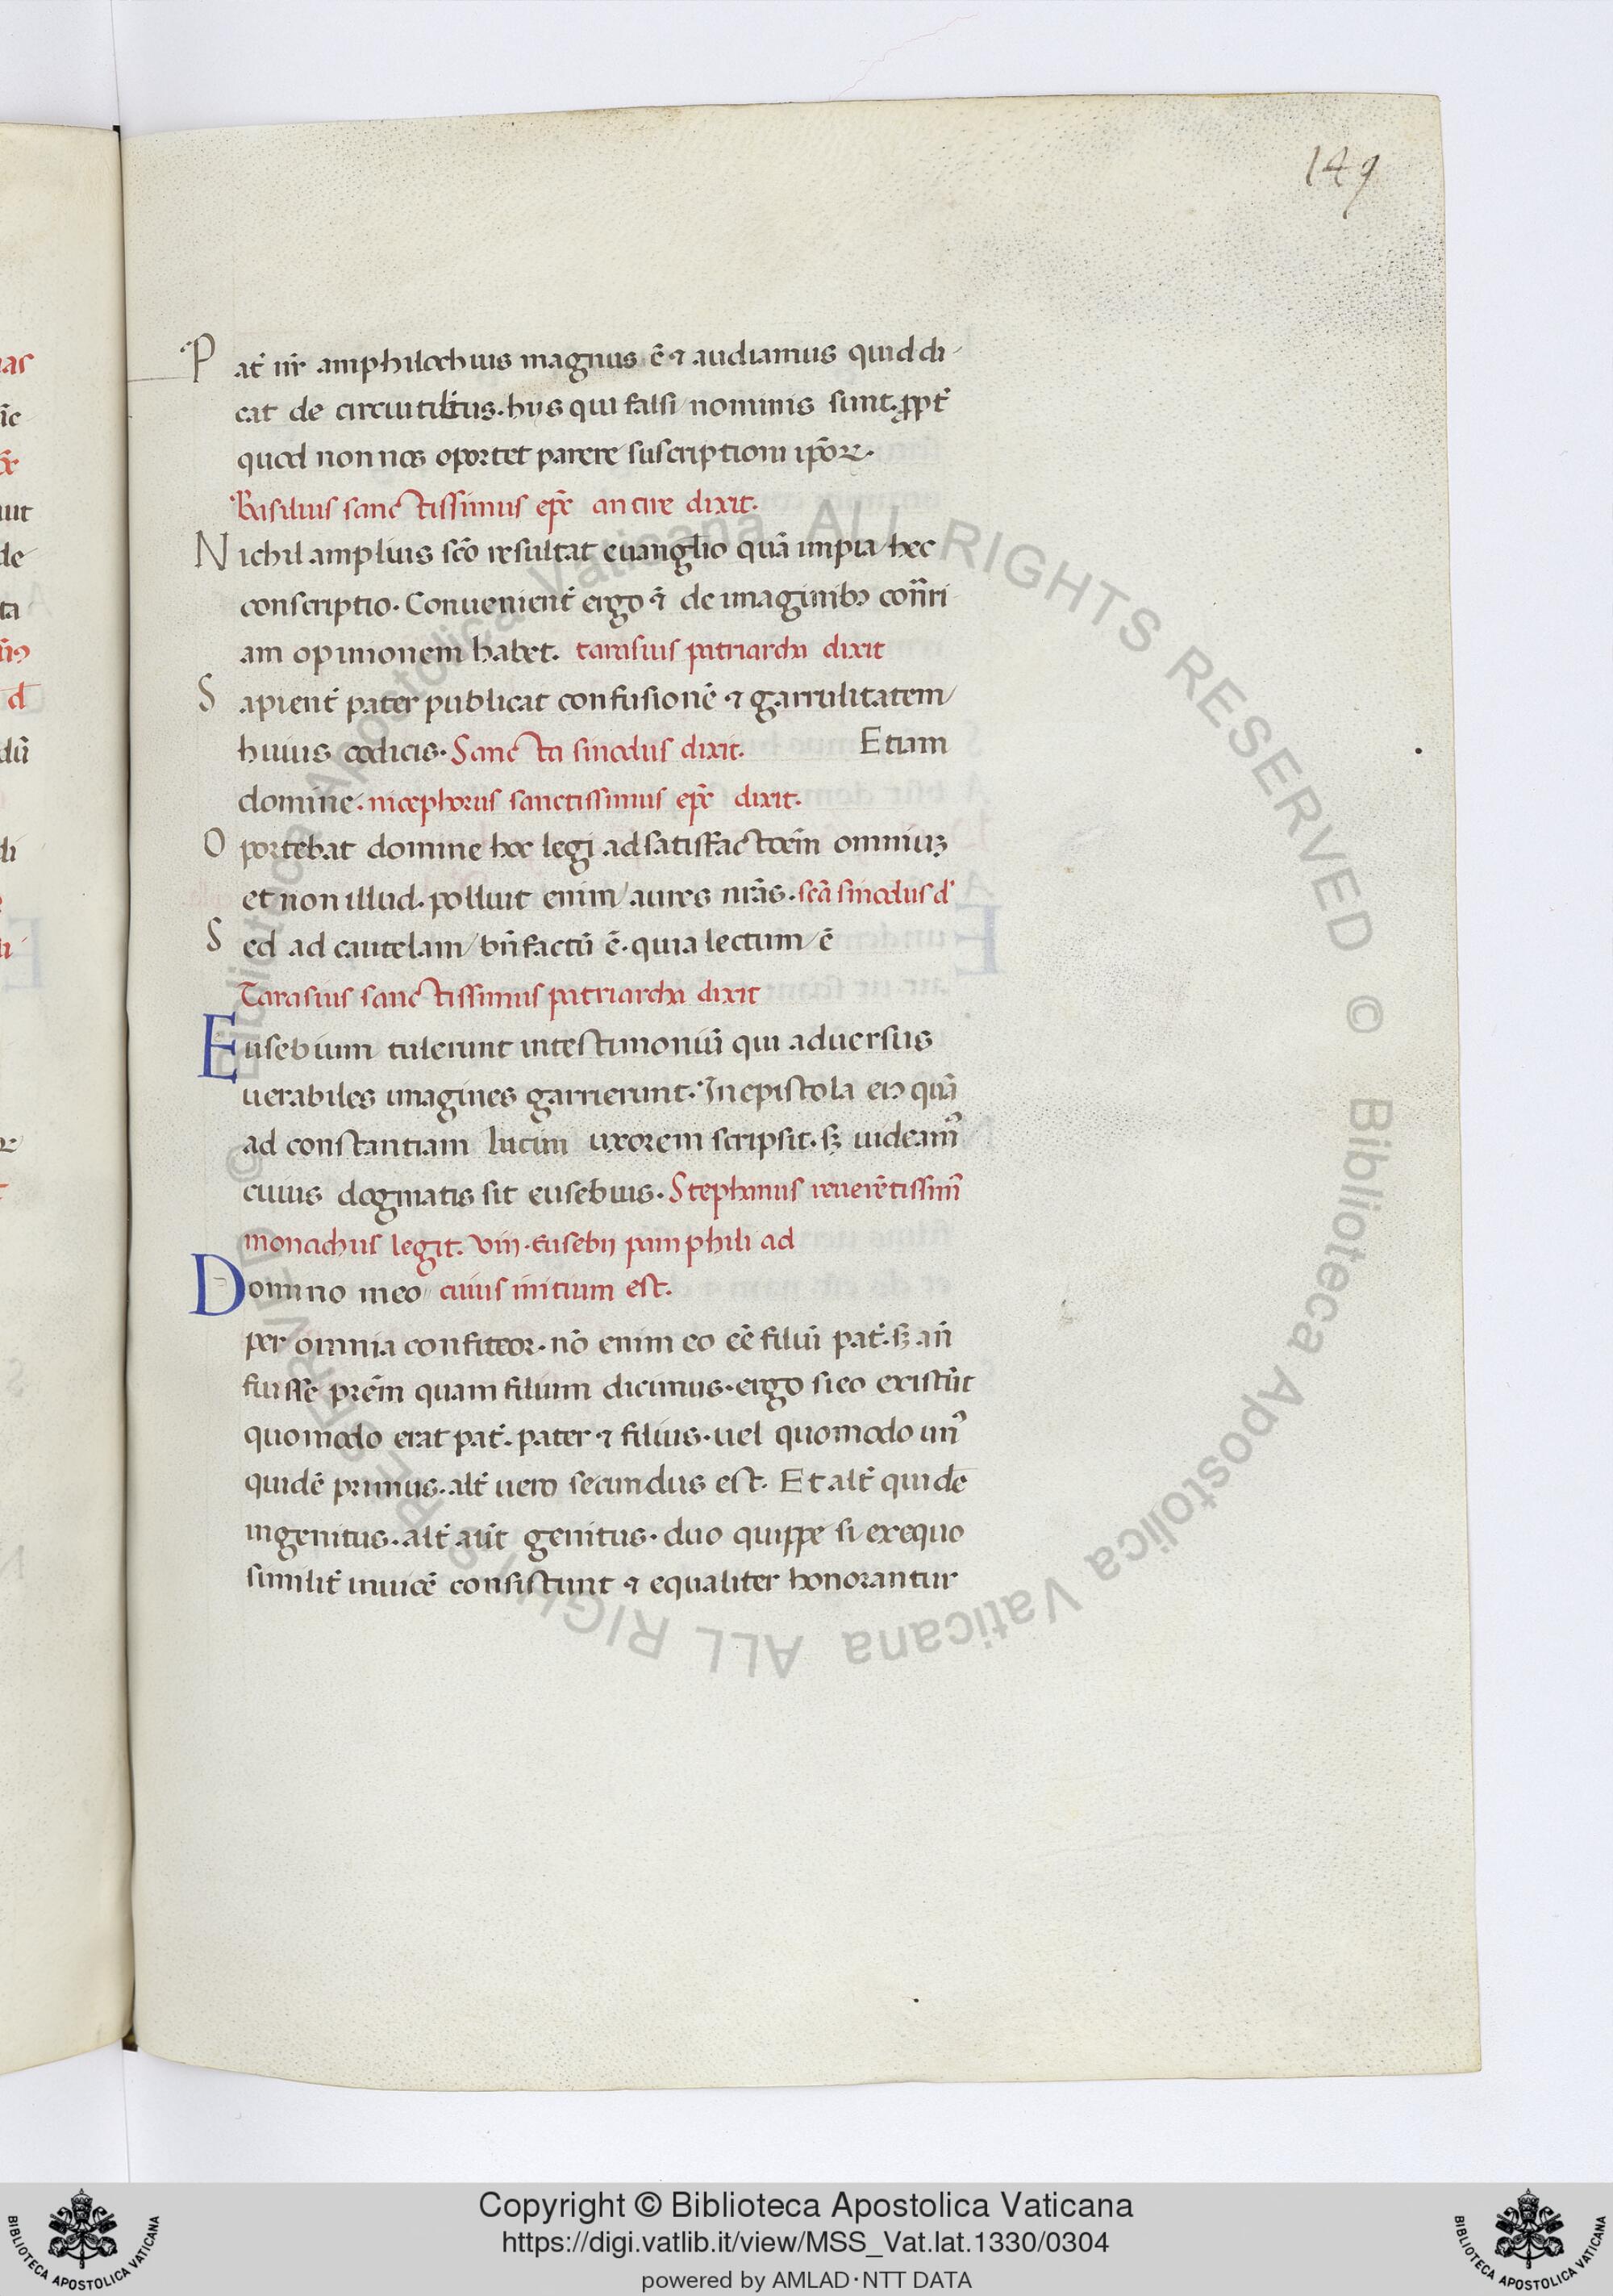 149
Pat̄ nr̄ amphilochius magnus ē ⁊ audiamus quid di-
cat de circuitibus. hys qui falsi nominis sunt. ꝓpt̄
quod non nos oportet parere suscriptioni ip̄oꝝ.
Basilius sanctissimus ep̄c ancire dixit.
Nichil amplius sc̄o resultat euanglio quā impia hec
conscriptio. Conuenient̄ ergo ⁊ de imaginibꝫ cont̄ri
am opinionem habet. tarasius patriarcha dixit
Sapient̄ pater publicat confusionē ⁊ garrulitatem
huius codicis. Sancta sinodus dixit. Etiam
domine. nicephorus sanctissimus ep̄c dixit.
Oportebat domine hoc legi ad satisfactōem omniuꝫ
et non illud. polluit enim aures nr̄as. sc̄a sinodus d̄
Sed ad cautelam bn̄ factū ē. quia lectum ē
Tarasius sanctissimus patriarcha dixit
Eusebium tulerunt in testimoniū qui aduersus
uerabiles imagines garrierunt. In epistola eiꝰ quā
ad constantiam lucini uxorem scripsit. sꝫ uideamꝰ
cuius dogmatis sit eusebius. Stephanus reuerētissimꝰ
monachus legit. Viii. eusebii pamphili ad
Domino meo cuius initium est.
per omnia confiteor. nō enim eo eē filiū pat̄. sꝫ an̄
fuisse prēm quam filium dicimus. ergo si eo existūt
quomodo erat pat̄. pater ⁊ filius. uel quomodo unꝰ
quidē primus. alt̄ uero secundus est. Et alt̄ quidē
ingenitus. alt̄ aūt genitus. duo quippe si exequo
similit̄ inuicē consistunt ⁊ equaliter honorantur
Biblioteca Apostolica Vaticana ALL RIGHTS RESERVED ©
Biblioteca Apostolica Vaticana ALL RIGHTS RESERVED ©
Copyright © Biblioteca Apostolica Vaticana
https://digi.vatlib.it/view/MSS_Vat.lat.1330/0304
powered by AMLAD·NTT DATA
BIBLIOTECA APOSTOLICA VATICANA
BIBLIOTECA APOSTOLICA VATICANA